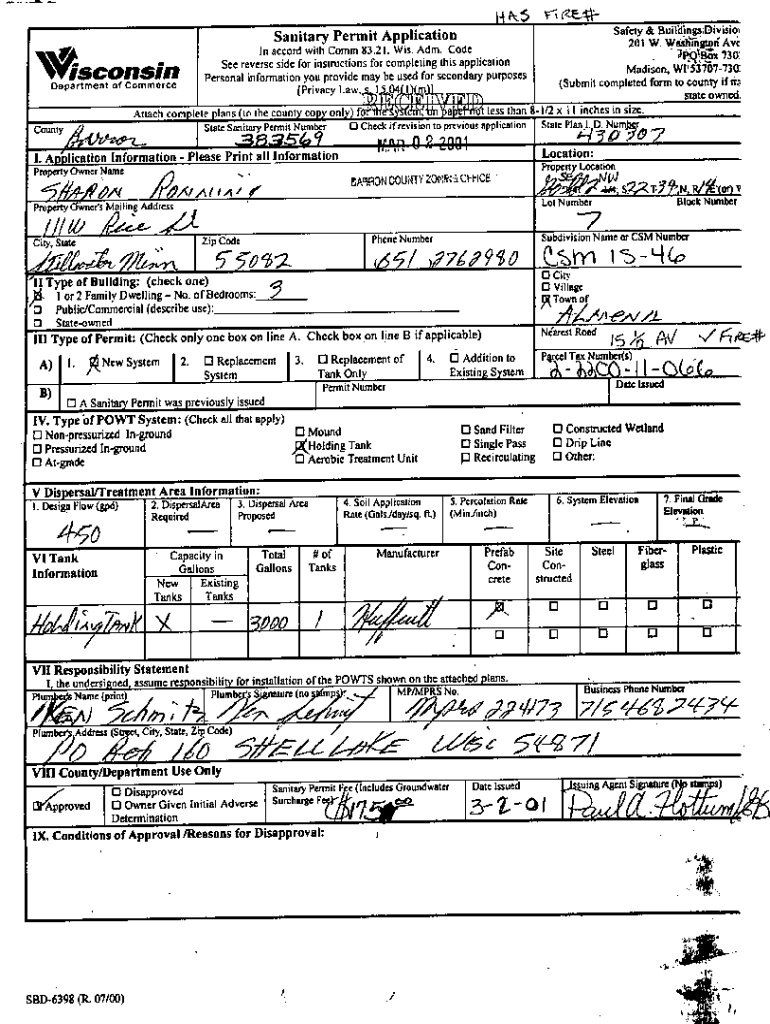 HAS FIRE#
Wisconsin
Department of Commerce
Sanitary Permit Application
In accord with Comm 83.21. Wis. Adm. Code
See reverse side for instructions for completing this application
Personal information you provide may be used for secondary purposes
[Privacy Law, s. 15.04(1)(m)]
Safety & Buildings Divisio
201 W. Washington Ave
PO Box 730
Madison, WI 53707-730
(Submit completed form to county if no
state owned.
RECEIVED
Attach complete plans (to the county copy only) for the system, on paper not less than 8-1/2 x 11 inches in size.
County
Barron
State Sanitary Permit Number
383569
☐ Check if revision to previous application
MAR 02 2001
State Plan I. D. Number
430307
I. Application Information - Please Print all Information
Location:
Property Owner Name
SHARON RONNING
BARRON COUNTY ZONING OFFICE
Property Location
SE NW S22 T39 N, R14 E(or) W
Property Owner's Mailing Address
111 W Rice St
Lot Number
7
Block Number
City, State
Stillwater Minn
Zip Code
55082
Phone Number
651 2762980
Subdivision Name or CSM Number
CSM 15-46
II Type of Building: (check one)
☒ 1 or 2 Family Dwelling – No. of Bedrooms: 3
☐ Public/Commercial (describe use):
☐ State-owned
☐ City
☐ Village
☒ Town of
ALMENA
III Type of Permit: (Check only one box on line A. Check box on line B if applicable)
Nearest Road
15 1/2 AV ✓ FIRE#
A) 1. ☒ New System 2. ☐ Replacement System 3. ☐ Replacement of Tank Only 4. ☐ Addition to Existing System
Parcel Tax Number(s)
2-2200-11-066
B) ☐ A Sanitary Permit was previously issued
Permit Number
Date Issued
IV. Type of POWT System: (Check all that apply)
☐ Non-pressurized In-ground ☐ Mound ☐ Sand Filter ☐ Constructed Wetland
☐ Pressurized In-ground ☒ Holding Tank ☐ Single Pass ☐ Drip Line
☐ At-grade ☐ Aerobic Treatment Unit ☐ Recirculating ☐ Other:
V Dispersal/Treatment Area Information:
1. Design Flow (gpd)
450
2. DispersalArea Required
—
3. Dispersal Area Proposed
—
4. Soil Application Rate (Gals./day/sq. ft.)
—
5. Percolation Rate (Min./inch)
—
6. System Elevation
—
7. Final Grade Elevation
VI Tank Information
Capacity in Gallons
New Tanks Existing Tanks
Total Gallons
# of Tanks
Manufacturer
Prefab Concrete
Site Constructed
Steel
Fiberglass
Plastic
Holding Tank X — 3000 1 Huffcutt ☒ ☐ ☐ ☐ ☐
☐ ☐ ☐ ☐ ☐
VII Responsibility Statement
I, the undersigned, assume responsibility for installation of the POWTS shown on the attached plans.
Plumber's Name (print)
KEN Schmitz
Plumber's Signature (no stamps):
Ken Schmitz
MP/MPRS No.
MPRS 224173
Business Phone Number
7154682434
Plumber's Address (Street, City, State, Zip Code)
PO Box 160 SHELL LAKE WISC 54871
VIII County/Department Use Only
☒ Approved
☐ Disapproved
☐ Owner Given Initial Adverse Determination
Sanitary Permit Fee (Includes Groundwater Surcharge Fee)
$175.00
Date Issued
3-2-01
Issuing Agent Signature (No stamps)
Paul A. Hottum
IX. Conditions of Approval /Reasons for Disapproval:
SBD-6398 (R. 07/00)